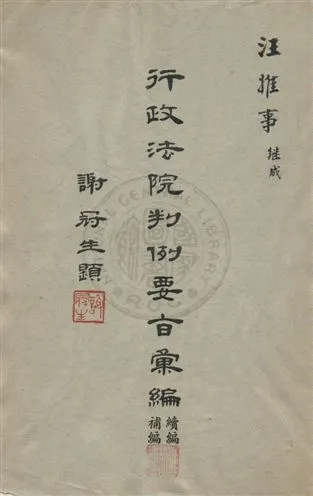 汪推事 继成
行政法院判例要旨彙編
續編
補編
謝冠生題